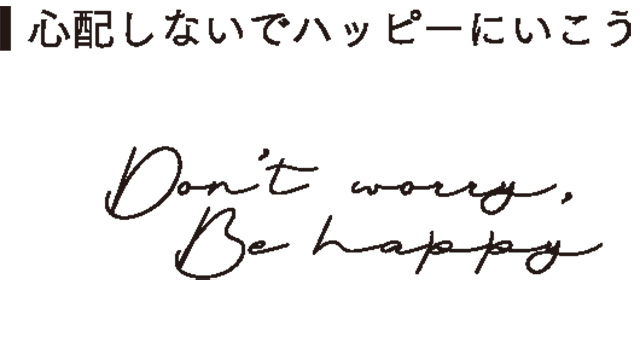 心配しないでハッピーにいこう
Don't worry,
Be happy